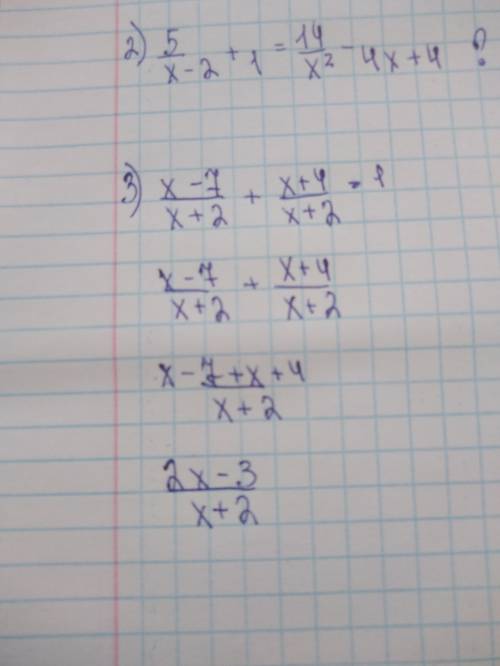 2) 5/(x-2) + 1 = 14/x² - 4x+4 ?
3) (x-7)/(x+2) + (x+4)/(x+2) = 1
(x-7)/(x+2) + (x+4)/(x+2)
(x-7+x+4)/(x+2)
(2x-3)/(x+2)